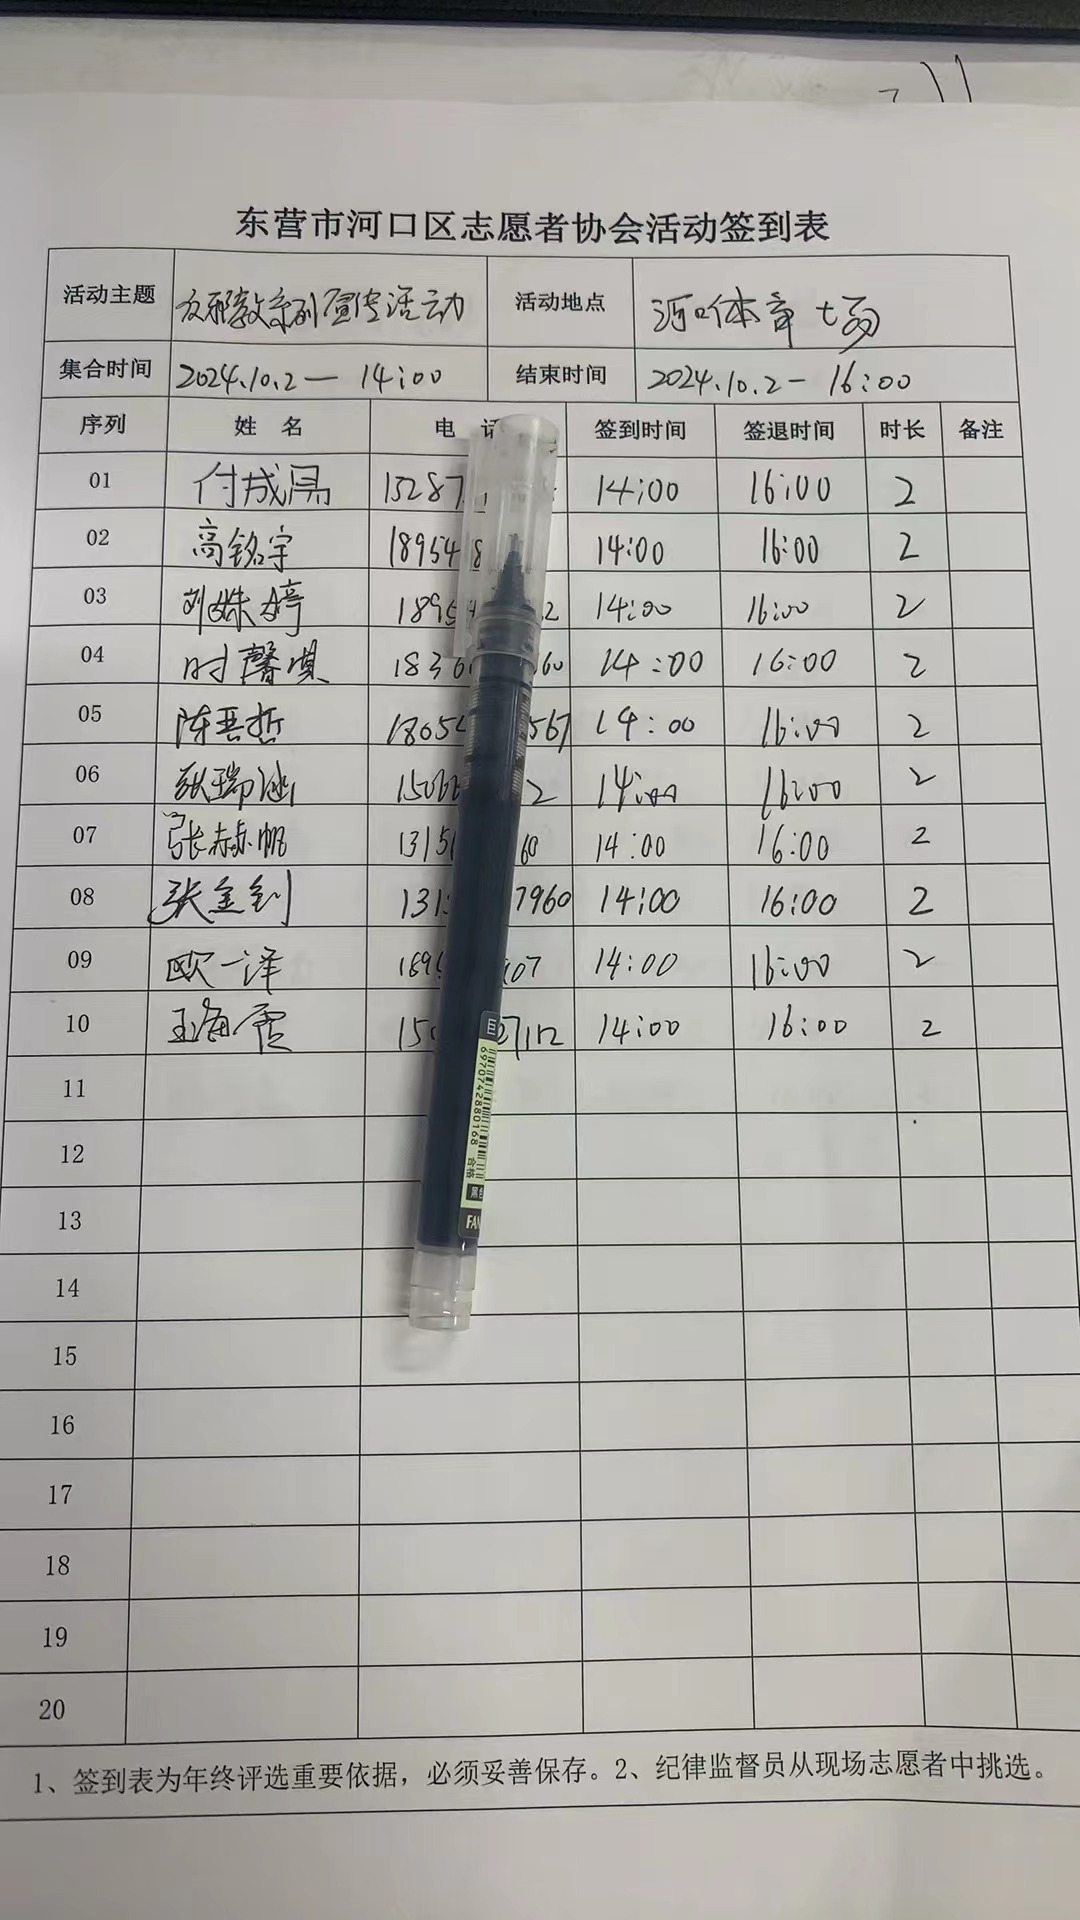 东营市河口区志愿者协会活动签到表
活动主题 反邪教系列宣传活动 活动地点 河口体育广场
集合时间 2024.10.2— 14:00 结束时间 2024.10.2- 16:00
序列 姓 名 电 签到时间 签退时间 时长 备注
01 付成 15287 14:00 16:00 2
02 高铭宇 18954 8 14:00 16:00 2
03 刘姝婷 1895 2 14:00 16:00 2
04 时馨淇 1836 60 14:00 16:00 2
05 陈吾哲 1805 567 14:00 16:00 2
06 张瑞涵 1506 2 14:00 16:00 2
07 张赫帆 1315 60 14:00 16:00 2
08 张金钊 131 7960 14:00 16:00 2
09 欧一泽 189 07 14:00 16:00 2
10 王海霞 15 14:00 16:00 2
11
12
13
14
15
16
17
18
19
20
6970742880168
合格
FAN
1、签到表为年终评选重要依据，必须妥善保存。2、纪律监督员从现场志愿者中挑选。